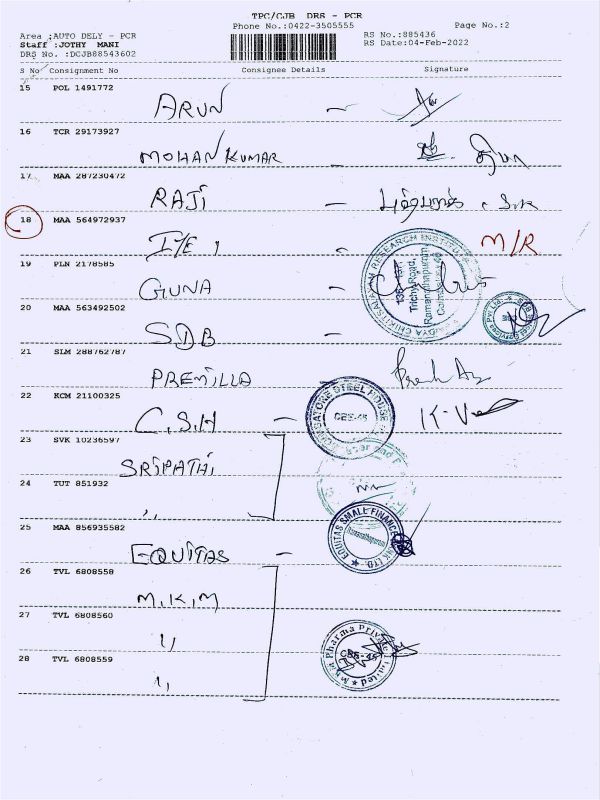 TPC/CJB DRS - PCR
Phone No.:0422-3505555
Page No.:2
Area :AUTO DELY - PCR
RS No.:885436
Staff :JOTHY MANI
RS Date:04-Feb-2022
DRS No. :DCJB88543602
S No Consignment No Consignee Details Signature
15 POL 1491772
ARUN -
16 TCR 29173927
MOHAN KUMAR -
17 MAA 287230472
RAJI -
18 MAA 564972937
I/E 1 - M/R
19 PLN 2178585
GUNA -
20 MAA 563492502
SDB -
21 SLM 288762787
PREMILLA
22 KCM 21100325
C.S.H -
23 SVK 10236597
SRIPATHI
24 TUT 851932
,,
25 MAA 856935582
EQUITAS -
26 TVL 6808558
M.K.M
27 TVL 6808560
,,
28 TVL 6808559
,,
RESEARCH INSTITUTE
Trichy Road,
Ramanathapuram
STEEL HOUSE
CBE-45
EQUITAS SMALL FINANCE BANK LTD.
Pharma Private Limited
CBE-45